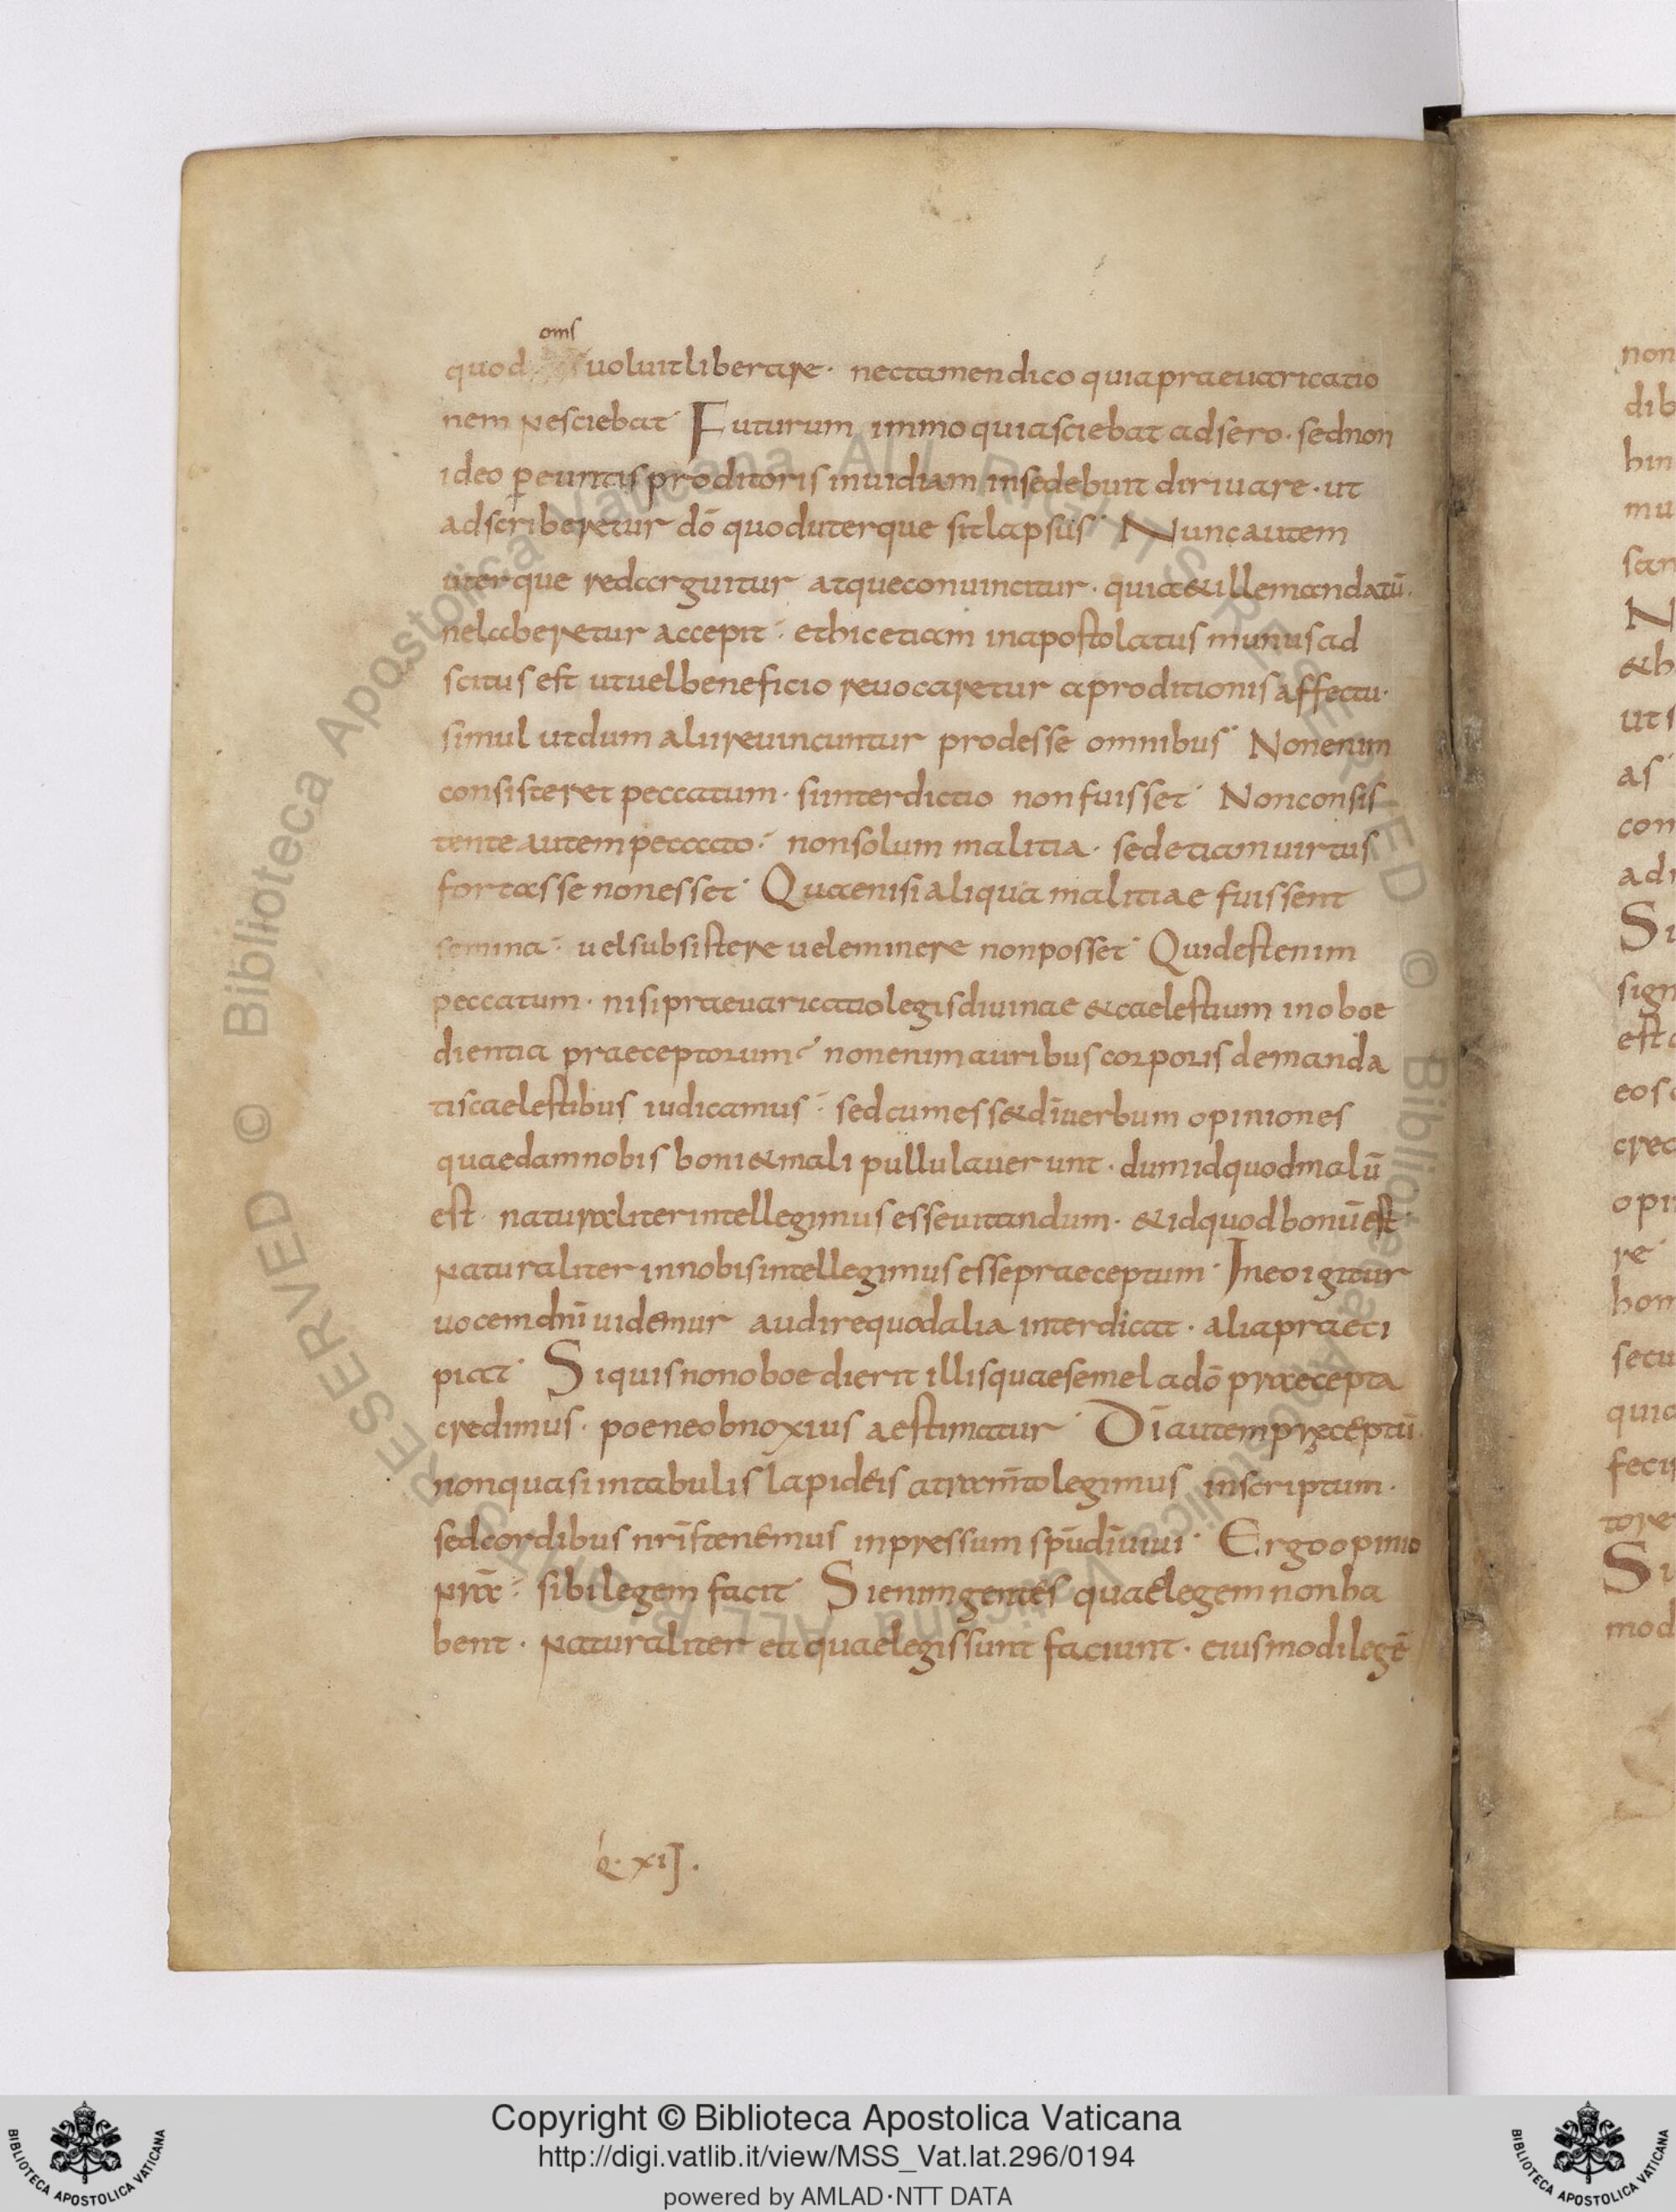 oms
quod uoluit liberare · nec tamen dico quia praeuaricatio
nem nesciebat · Futurum immo quia sciebat adsero · sed non
ideo p̱euntis proditoris inuidiam in se debuit diriuare · ut
adscriberetur dō quod uterque sit lapsus · Nunc autem
uterque redarguitur atque conuincitur · quia & ille mandatū
ne laberetur accepit · et hic etiam in apostolatus munus ad
scitus est ut uel beneficio reuocaretur a proditionis affectu ·
simul ut dum alii reuincuntur prodesse omnibus · Non enim
consisteret peccatum · si interdictio non fuisset · Non consis
tente autem peccato · non solum malitia · sed etiam uirtus
fortasse non esset · Quae nisi aliqua malitiae fuissent
semina · uel subsistere uel eminere non posset · Quid est enim
peccatum · nisi praeuaricatio legis diuinae & caelestium inoboe
dientia praeceptorum · non enim auribus corporis de manda
tis caelestibus iudicamus · sed cum ess& dī uerbum opiniones
quaedam nobis boni & mali pullulauerunt · dum id quod malū
est · naturaliter intellegimus esse uitandum · & id quod bonū est
naturaliter in nobis intellegimus esse praeceptum · In eo igitur
uocem dnī uidemur audire quod alia interdicat · alia praeci
piat · Si quis non oboedierit illis quae semel a dō praecepta
credimus · poene obnoxius aestimatur · Dī autem pręceptū
non quasi in tabulis lapideis atramto legimus inscriptum ·
sed cordibus nrīs tenemus inpressum spū dī uiui · Ergo opinio
nrā · sibi legem facit · Si enim gentes quae legem non ha
bent · naturaliter ea quae legis sunt faciunt · eiusmodi legē
q · xij ·
non
dib
hin
mu
san
N
& h
ut s
as ·
con
adi
Si
sign
est
eos
cred
opi
re ·
hom
secu
quia
feci
tore
Si
mod
Copyright © Biblioteca Apostolica Vaticana
http://digi.vatlib.it/view/MSS_Vat.lat.296/0194
powered by AMLAD·NTT DATA
BIBLIOTECA APOSTOLICA VATICANA
BIBLIOTECA APOSTOLICA VATICANA